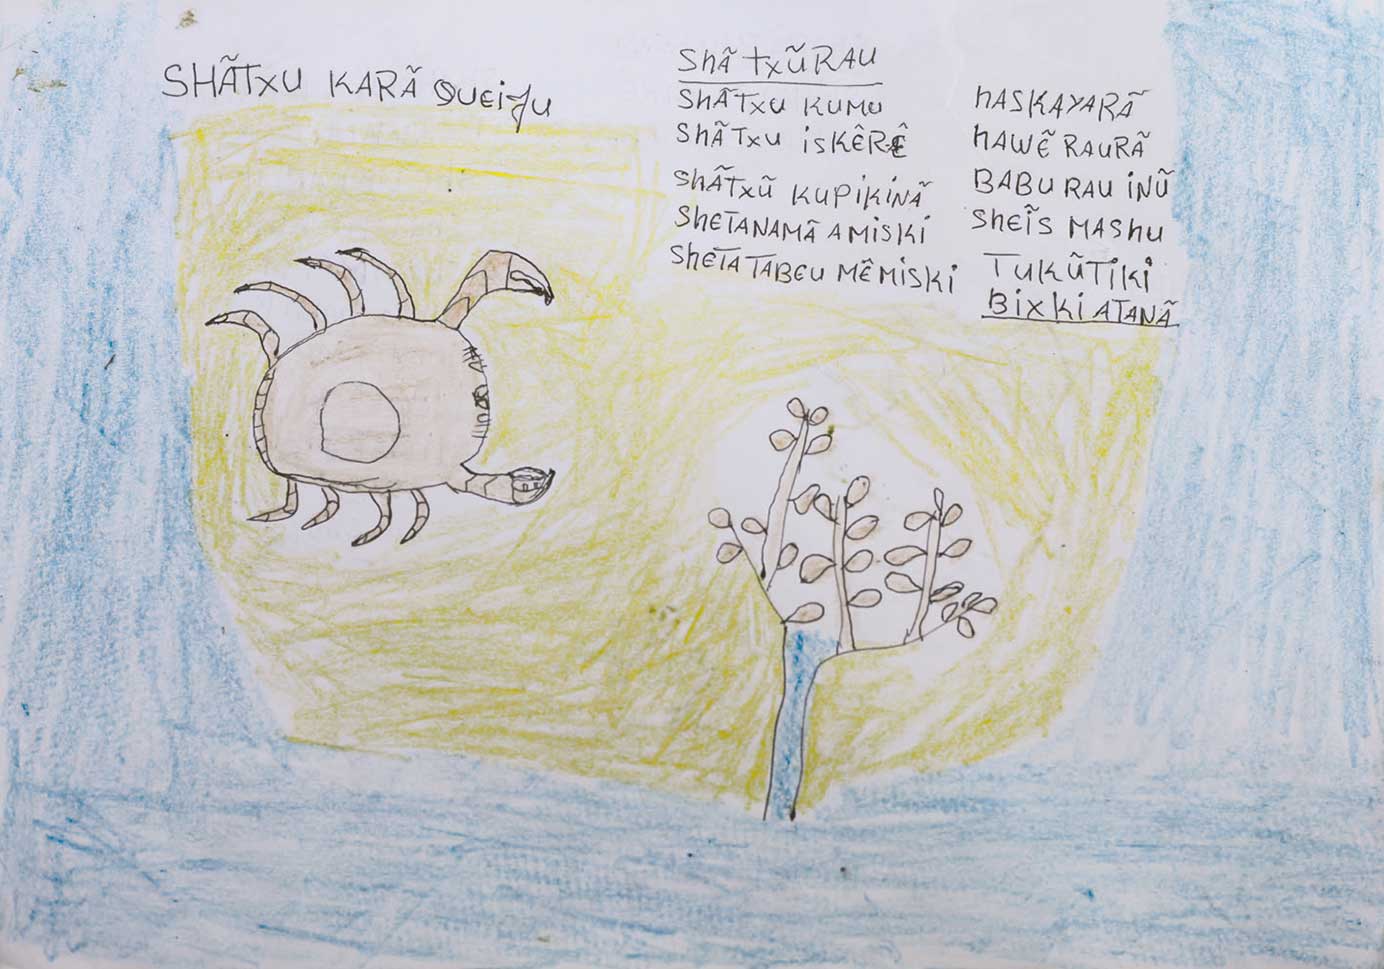 SHÃTXU KARÃ QUEIJU
ShÃTXŨRAU
ShÃTXU KUMU
ShÃTXU iSKÊRÊ
ShÃTXŨ KUPIKINÃ
ShETANAMÃ AMISKi
ShETA TABEU MÊMiSKi
hASKAYARÃ
hAWẼ RAURÃ
BABU RAU iNŨ
ShEĨS MAShU
TUKŨTiKi
BiXKi ATANÃ